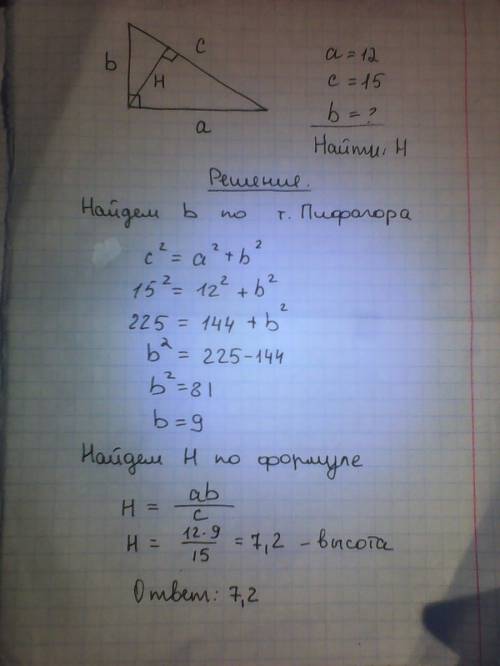 b
c
H
a
a = 12
c = 15
b = ?
Найти: H
Решение.
Найдем b по т. Пифагора
c² = a² + b²
15² = 12² + b²
225 = 144 + b²
b² = 225 - 144
b² = 81
b = 9
Найдем H по формуле
H = ab/c
H = 12·9/15 = 7,2 - высота
Ответ: 7,2